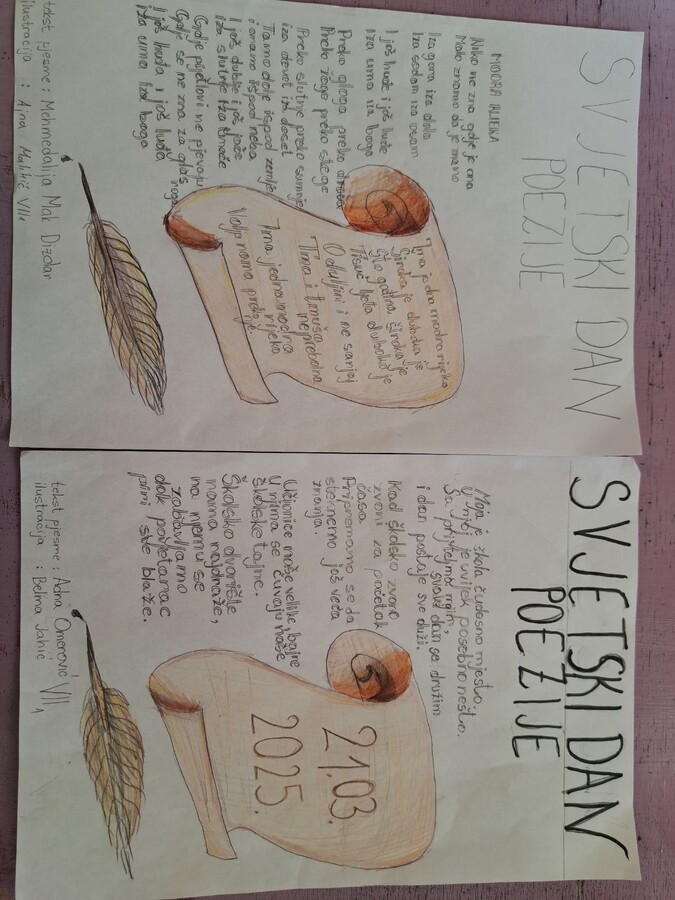 SVJETSKI DAN
POEZIJE
MODRA RIJEKA
Niko ne zna gdje je ona
Malo znamo da je znano
Iza gora iza dola
Iza sedam iza osam
I još huđe i još luđe
Iza uma iza boga
Preko gloga preko drača
Preko žege preko stege
Preko slutnje preko sumnje
iza devet iza deset
Tamo dole ispod zemlje
i onamo ispod neba
I još dublje i još jače
iza šutnje iza tmače
Gdje pijetlovi ne pjevaju
Gdje se ne zna za glas roga
I još huđe i još luđa
iza uma iza boga
Ima jedna modra rijeka
Široka je duboka je
Sto godina široka je
Tisuć ljeta duboka je
O duljini i ne sanjaj
Tma i tmuša
neprebolna
Ima jedna modra
rijeka
Valja nama preko
rijeke
tekst pjesme : Mehmedalija Mak Dizdar
ilustracija : Aina Mulikić VII1
SVJETSKI DAN
POEZIJE
Moja je škola čudesno mjesto,
U njoj je uvijek posebno nešto.
Sa prijateljima mojim
svaki dan se družim
i dan postaje sve duži.
Kad školsko zvono
zvoni za početak
časa
Pripremamo se da
steknemo još veća
znanja.
Učionice naše velike, bajne
U njima se čuvaju naše
školske tajne.
Školsko dvorište
nama najdraže,
na njemu se
zabavljamo
dok povetarac
piri sve blaže.
21.03.
2025.
tekst pjesme : Adna Omerović VII1
ilustracija : Belma Jahić